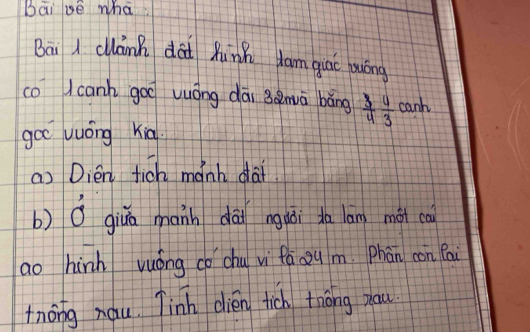 Bài về nhà:
Bài 1 Mảnh đất hình tam giác vuông
có 1 cạnh góc vuông dài 32m và bằng 4/3 cạnh
góc vuông kia.
a) Diện tích mảnh đất.
b) Ở giữa mảnh đất người ta làm một cái
ao hình vuông có chu vi là 24 m. Phần còn lại
trồng rau. Tính diện tích trồng rau.